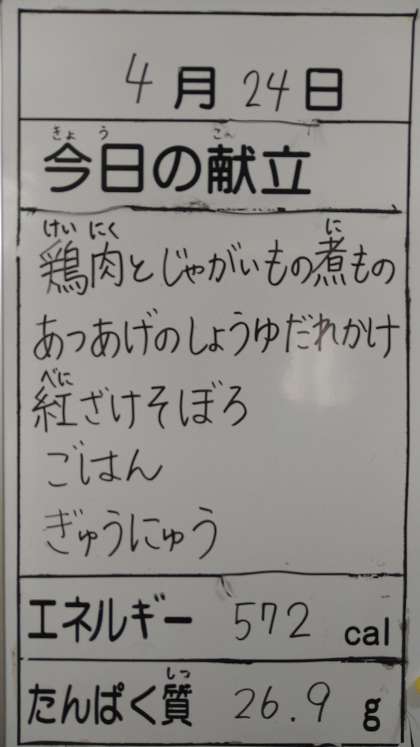 4月24日
きょう こん
今日の献立
けいにく に
鶏肉とじゃがいもの煮もの
あつあげのしょうゆだれかけ
べに
紅ざけそぼろ
ごはん
ぎゅうにゅう
エネルギー 572 cal
しつ
たんぱく質 26.9 g